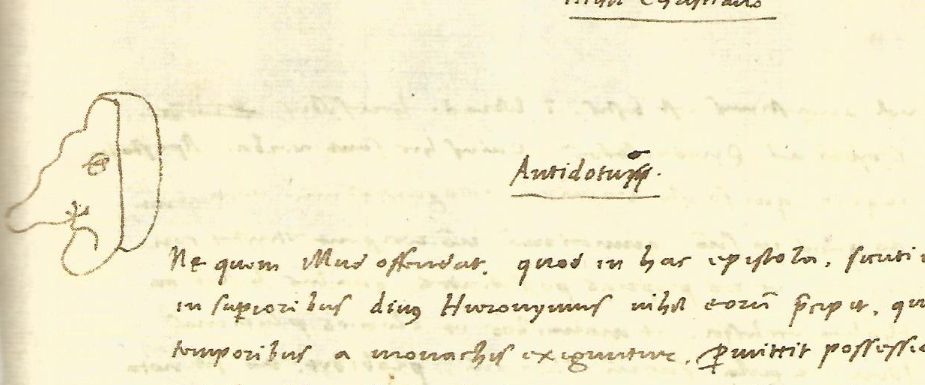 Christiano
Antidotum.
Ne quem illud offendat, quod in hac epistola, sicuti
in supioribus diuus Hieronymus nihil eorū p̄cipit, qu
temporibus a monachis exiguntur, ꝑmittit possessio